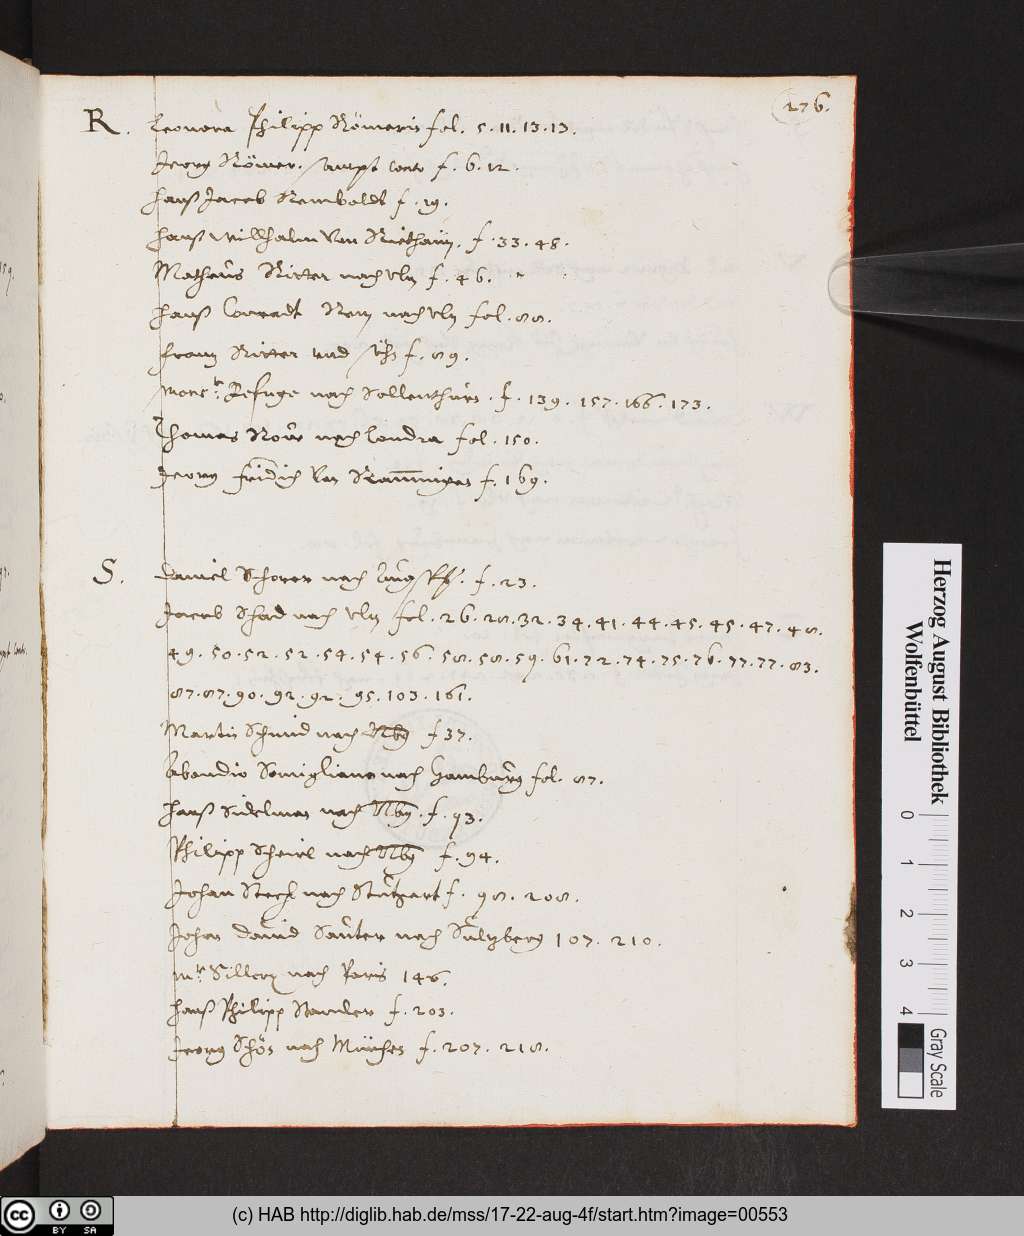 276.
R. Leonora Philipp Römerin fol. 5. 11. 13. 13.
Jeorg Römer. f. 6. 12.
Hanß Jacob Remboldt f. 19.
Hanß Willhalm Von Riethaim. f. 33. 48.
Matheus Ritter nach Ulm f. 46.
Hanß Conradt Rem nach Ulm fol. 88.
Franz Ritter und f. 89.
Refuge nach Sollenthurn. f. 139. 157. 166. 173.
Thomas Row nach Londra fol. 150.
Jeorg Fridrich Von Ramingen f. 169.
S. Daniel Schorer nach f. 23.
Jacob Schad nach Ulm fol. 26. 28. 32. 34. 41. 44. 45. 45. 47. 48.
49. 50. 52. 52. 54. 54. 56. 58. 58. 59. 61. 72. 74. 75. 76. 77. 77. 83.
87. 87. 90. 92. 92. 95. 103. 161.
Martin Schmid nach Nbg f 37.
Abondio Somigliano nach Hamburg fol. 87.
Hanß Sidelman nach Nbg. f. 93.
Philipp Scheirl nach Nbg f. 94.
Johan Stechl nach Stutgart f. 98. 208.
Johan David Sauter nach Sultzberg 107. 210.
Mr. Sillery nach Paris 146.
Hanß Philipp f. 203.
Jeorg Schön nach München f. 207. 218.
Herzog August Bibliothek
Wolfenbüttel
0 1 2 3 4
Gray Scale
CC BY SA
(c) HAB http://diglib.hab.de/mss/17-22-aug-4f/start.htm?image=00553